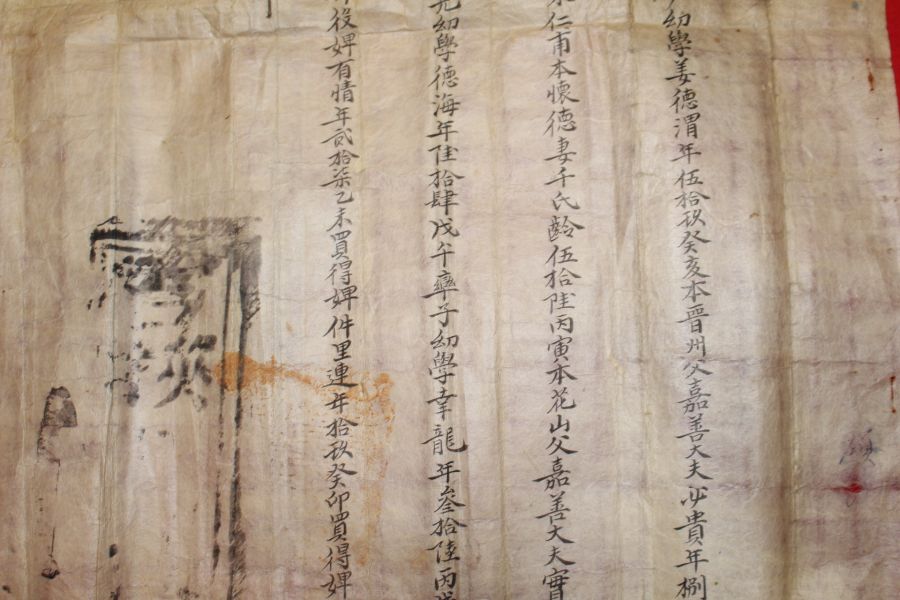 幼學姜德渭年伍拾玖癸亥本晋州父嘉善大夫必貴年捌
仁甫本懷德妻千氏齡伍拾陸丙寅本花山父嘉善大夫實
兄幼學德海年陸拾肆戊午率子幼學幸龍年叁拾陸丙戌
役婢有情年貳拾柒乙未買得婢件里連年拾玖癸卯買得婢